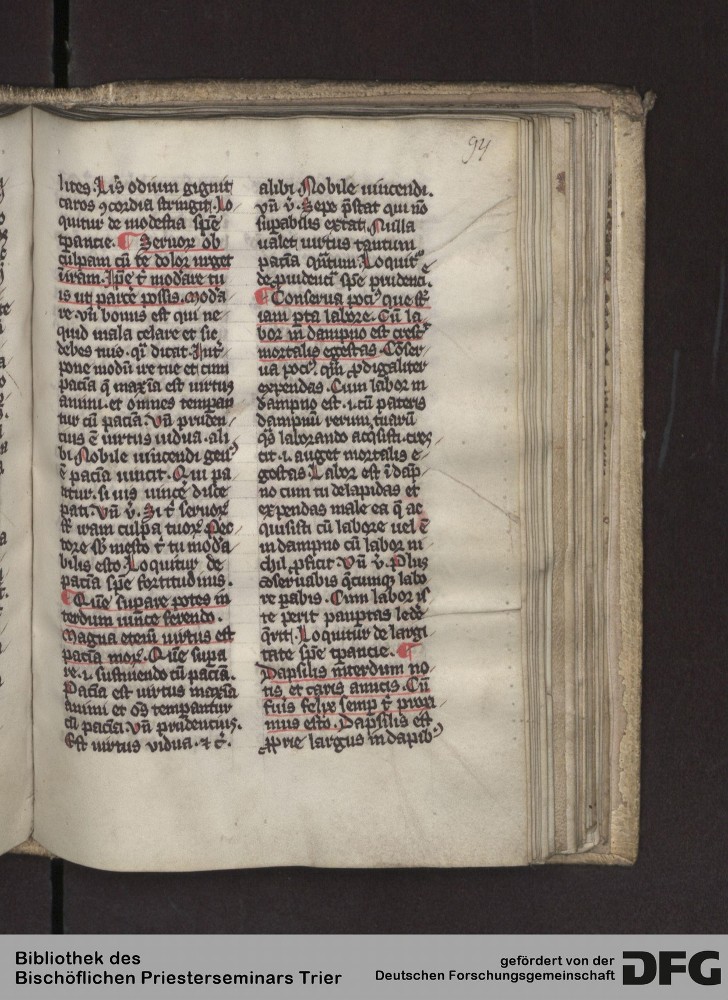 94
lites. Lis odium gignit
caros ꝯcordia stringit. Lo
quitur de modestia spē
tpancie. Seruoꝝ ob
culpam cū te dolor urget
in iram. Ipē t̄ modare tu
is ut parcē possis. Moda
re. vn̄ bonus est qui ne
quid mala celare et sic
debes tuis. qi dicat. Int̾
pone modū ire tue et cum
pacia q̄ maxīa est uirtus
animi. et omnes tempan
tur cū pacia. Vn̄ pruden
cius ē uirtus uidua. ali
bi. Nobile uincendi genꝰ
ē pacia uincit. Qui pa
titur. si uis uincē disce
pati. Vn̄ v̄. Si t̄ seruoꝝ
iram culpa tuoꝝ. Pec
tore sb mesto t̄ tu moda
bilis esto. Loquitur de
pacia spē fortitudinis.
Quē supare potes in
terdum uince ferendo.
Magna etenī uirtus est
pacia moꝝ. Quē supa
re. i. sustinendo cū pacia.
Pacia est uirtus maxīa
animi et os tempantur
cū pacia. Vn̄ prudencius.
Est uirtus vidua. ⁊ c̄.
alibi. Nobile uincendi.
Vn̄ v̄. Sepe p̄stat qui nō
supabilis extat. Nulla
ualet uirtus tantum
pacia qntum. Loquitꝰ
de prudenci spē prudenci.
Conserua poci que st̄
iam pta labore. Cū la
bor in dampno est crescit
mortalis egestas. Cōser
ua poci. qm prodigaliter
expendas. Cum labor in
dampno est. i. cū pateris
dampnū rerum tuarū
qs laborando acqsisti. cres
cit. i. auget mortalis e
gestas. Labor est ī dāp
no cum tu delapidas et
expendas male ea q̄ ac
quisisti cū labore uel ē
in dampno cū labor ni
chil pficit. Vn̄ v̄. Plus
ꝯseruabis qcumqꝫ labo
re pabis. Cum labor is
te perit pauptas lede
qrit. Loquitur de largi
tate spē tpancie.
Dapsilis interdum no
tis et caris amicis. Cū
fuis felix semp t̄ proxi
mus esto. Dapsilis est
ꝓprie largus in dapibꝰ
Bibliothek des
Bischöflichen Priesterseminars Trier
gefördert von der
Deutschen Forschungsgemeinschaft
DFG